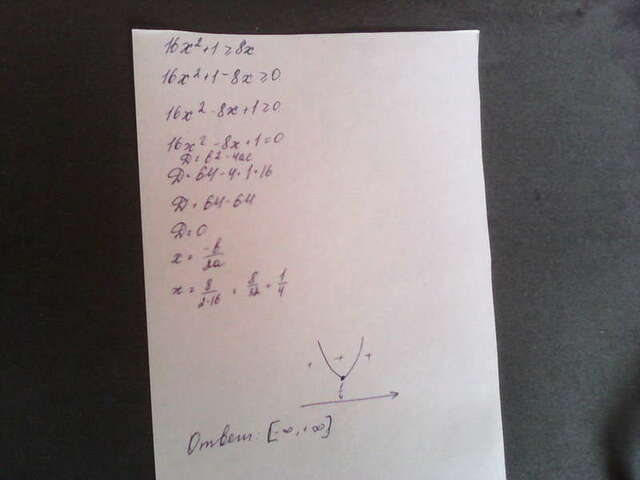 16x²+1≥8x
16x²+1-8x≥0
16x²-8x+1≥0
16x²-8x+1=0
Д=b²-4ac
Д=64-4·1·16
Д=64-64
Д=0
x = -b/2a
x = 8/2·16 = 8/32 = 1/4
+ + +
Ответ: [-∞;+∞]